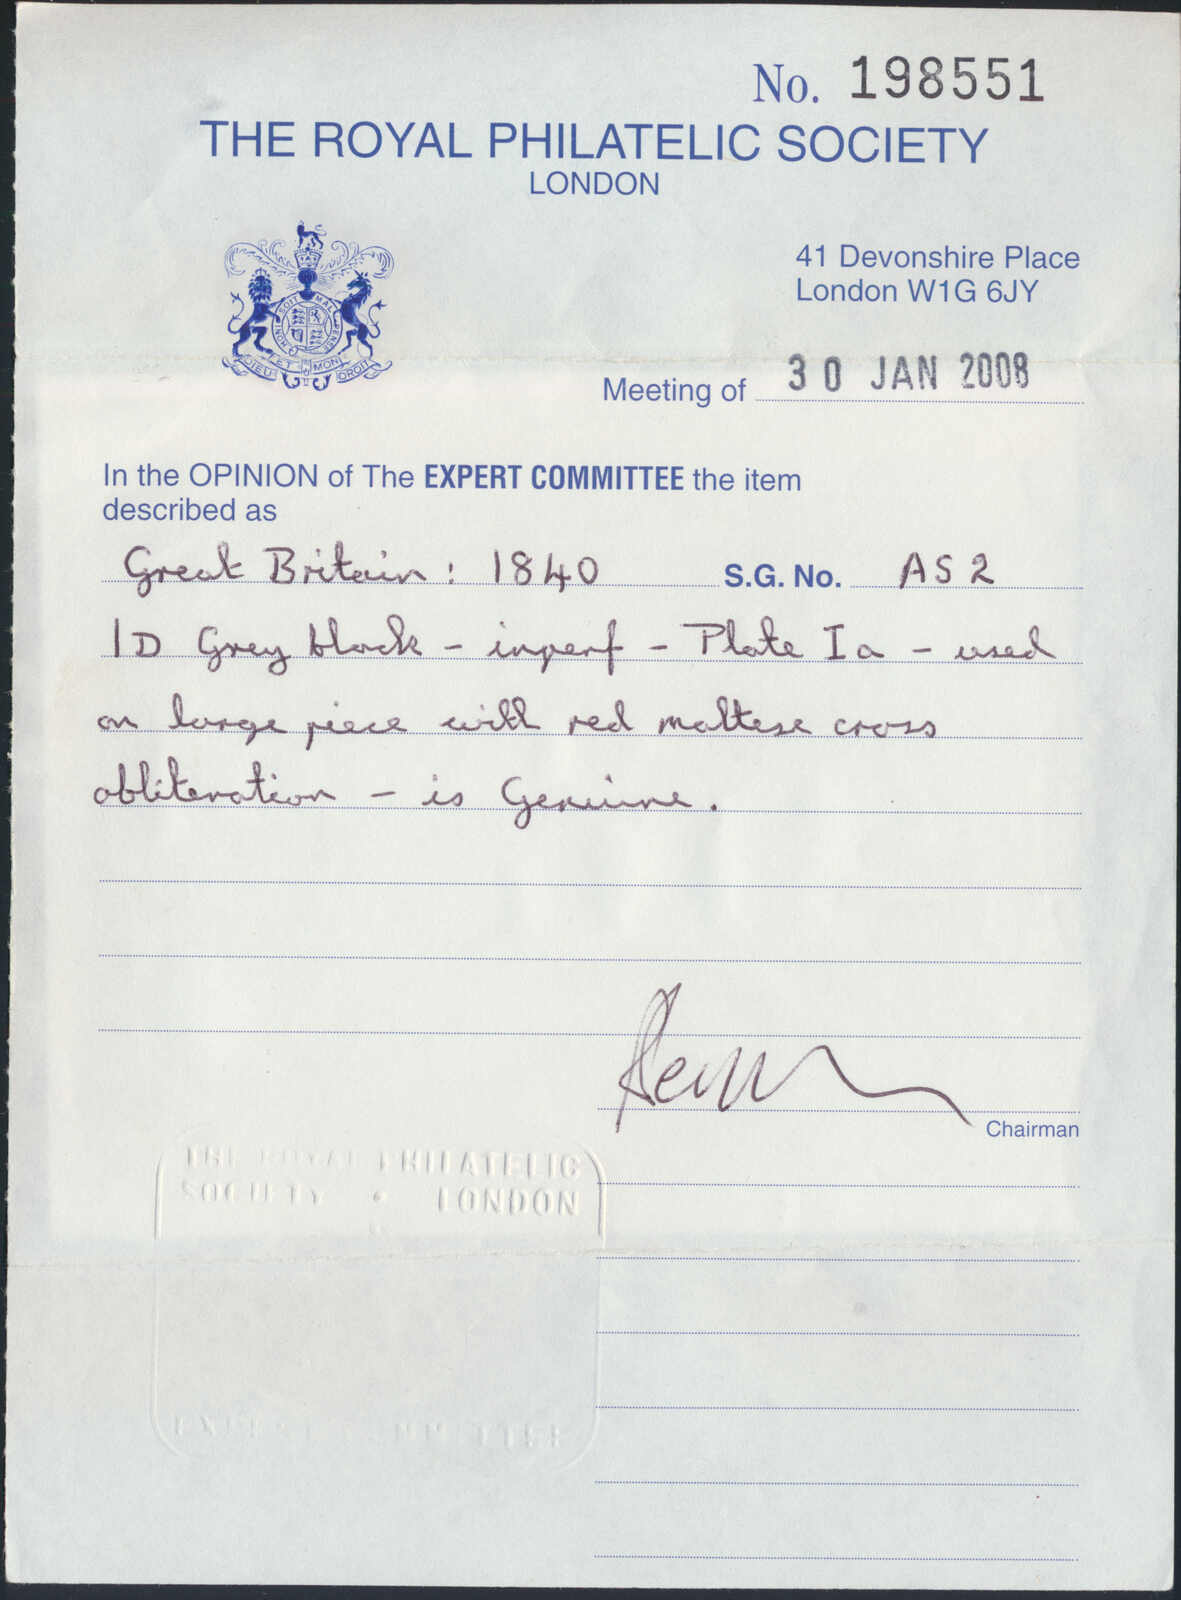 No. 198551
THE ROYAL PHILATELIC SOCIETY
LONDON
41 Devonshire Place
London W1G 6JY
HONI SOIT MAL PENSE
DIEU ET MON DROIT
Meeting of 30 JAN 2008
In the OPINION of The EXPERT COMMITTEE the item
described as
Great Britain: 1840 S.G. No. AS2
1D Grey black - imperf - Plate Ia - used
on large piece with red maltese cross
obliteration - is Genuine.
Chairman
THE ROYAL PHILATELIC
SOCIETY LONDON
EXPERT COMMITTEE